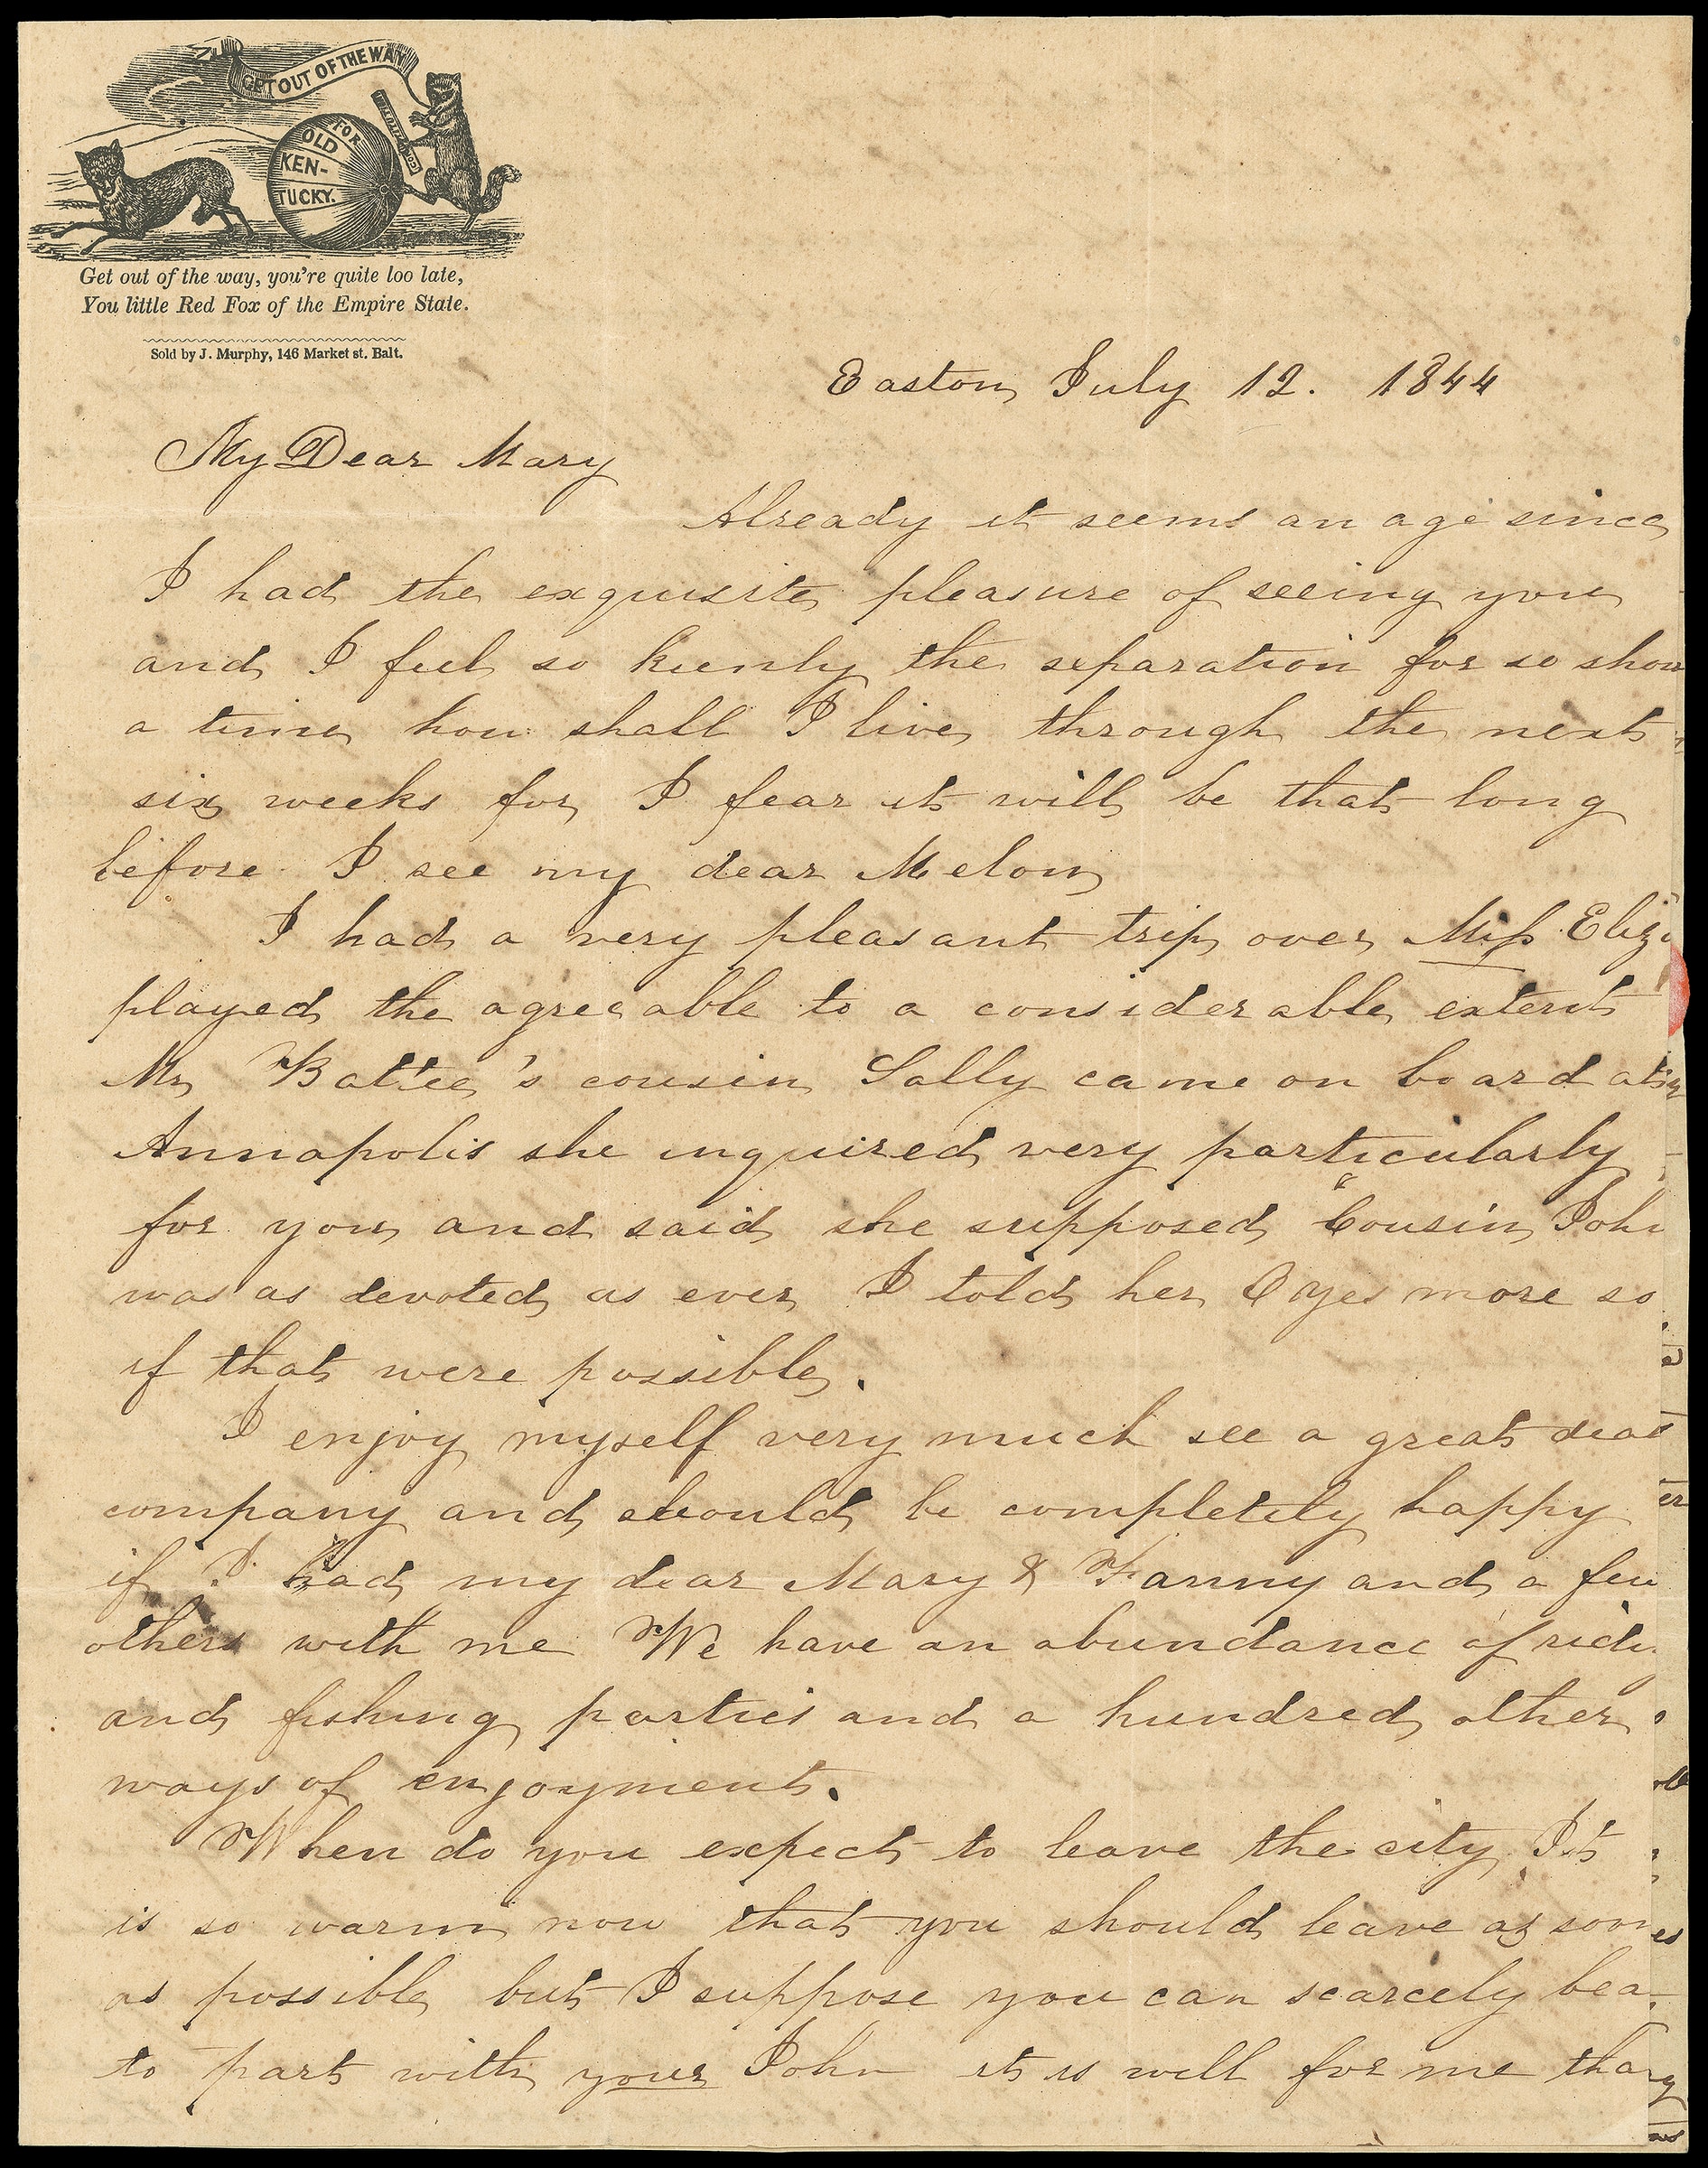 GET OUT OF THE WAY
FOR
OLD
KEN-
TUCKY.
Get out of the way, you're quite loo late,
You little Red Fox of the Empire State.
Sold by J. Murphy, 146 Market st. Balt.
Easton July 12. 1844
My Dear Mary
Already it seems an age since
I had the exquisite pleasure of seeing you
and I feel so keenly the separation for so shor
a time how shall I live through the next
six weeks for I fear it will be that long
before I see my dear Melon
I had a very pleasant trip over Miss Eliza
played the agreeable to a considerable extent
Mr Battee's cousin Sally came on board at
Annapolis she inquired very particularly
for you and said she supposed "Cousin John
was as devoted as ever I told her O yes more so
if that were possible.
I enjoy myself very much see a great deal
company and should be completely happy
if I had my dear Mary & Fanny and a few
others with me We have an abundance of ridi
and fishing parties and a hundred other
ways of enjoyment.
When do you expect to leave the city It
is so warm now that you should leave as soon
as possible but I suppose you can scarcely bea
to part with your John it is well for me tha